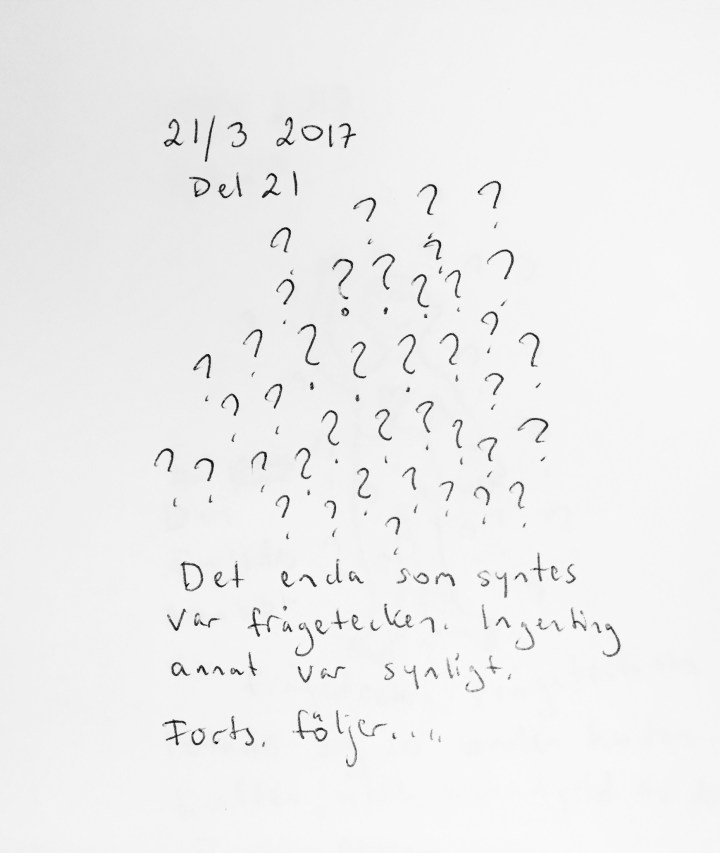 21/3 2017
Del 21
? ? ?
? ?
? ? ? ? ? ?
? ? ? ? ? ? ? ?
? ? ?
? ? ? ? ? ?
? ? ? ? ? ? ? ? ?
? ? ?
Det enda som syntes
var frågetecken. Ingenting
annat var synligt.
Forts. följer....